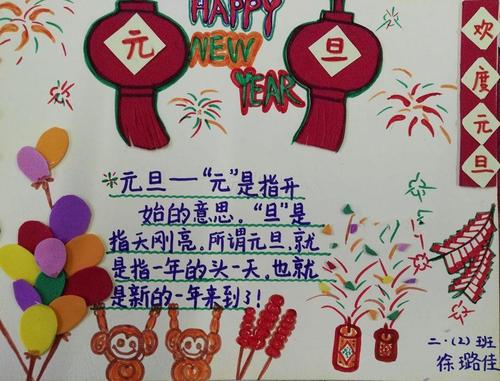 HAPPY
NEW
YEAR
元
旦
欢度元旦
元旦——“元”是指开
始的意思。“旦”是
指天刚亮。所谓元旦,就
是指一年的头一天,也就
是新的一年来到了!
二·(2)班
徐璐佳